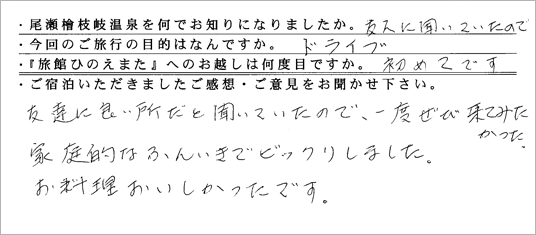 ・尾瀬檜枝岐温泉を何でお知りになりましたか。友人に聞いていたので
・今回のご旅行の目的はなんですか。 ドライブ
・『旅館ひのえまた』へのお越しは何度目ですか。 初めてです
・ご宿泊いただきましたご感想・ご意見をお聞かせ下さい。
友達に良い所だと聞いていたので、一度ぜひ来てみた
かった。
家庭的なふんいきでビックリしました。
お料理おいしかったです。